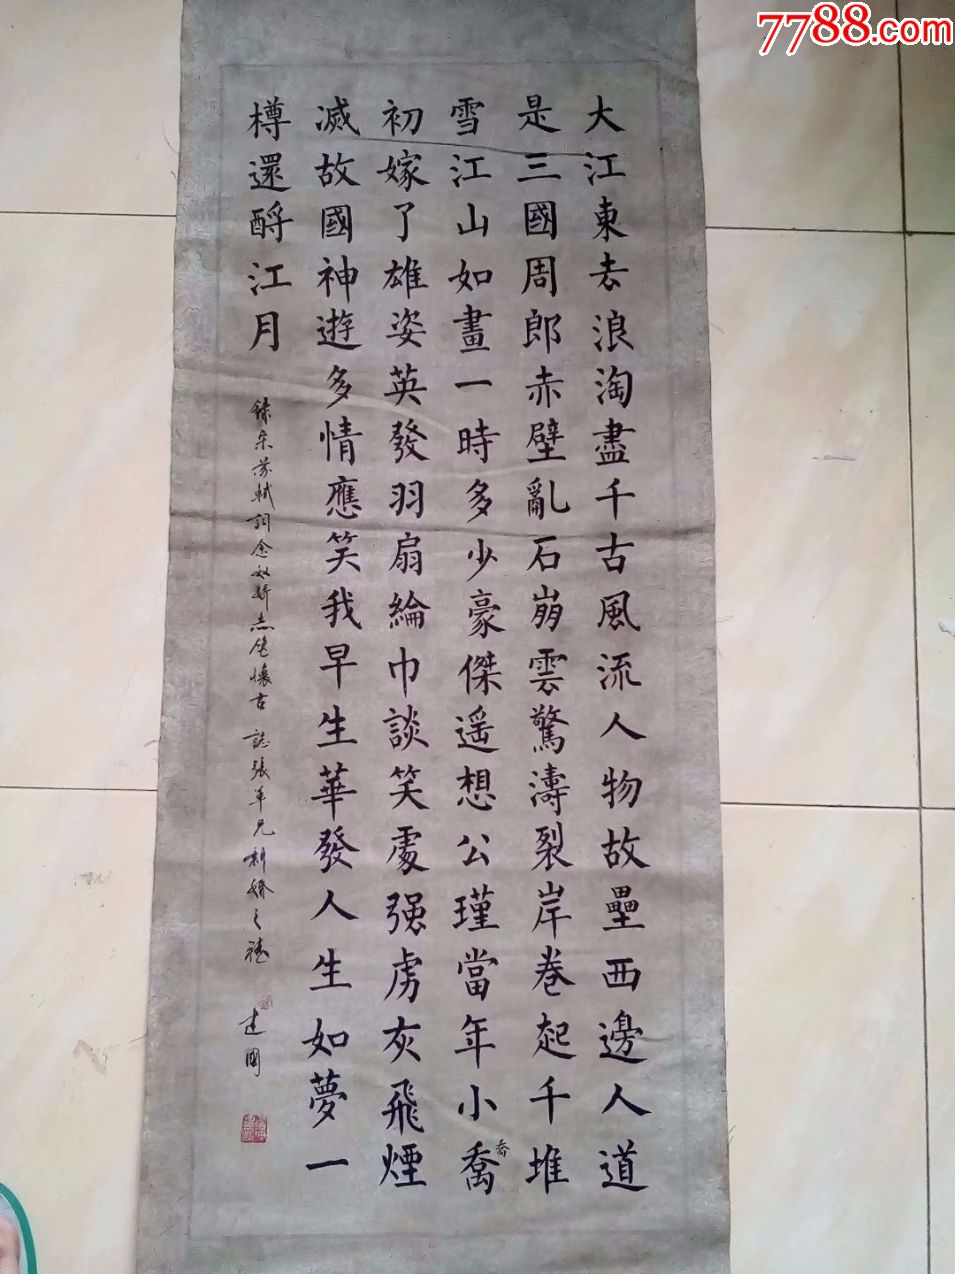 7788.com
大江東去浪淘盡千古風流人物故壘西邊人道
是三國周郎赤壁亂石崩雲驚濤裂岸卷起千堆
雪江山如畫一時多少豪傑遥想公瑾當年小喬
喬
初嫁了雄姿英發羽扇綸巾談笑處强虜灰飛煙
滅故國神遊多情應笑我早生華發人生如夢一
樽還酹江月
錄宋蘇軾詞念奴嬌赤壁懷古 誌張軍兄新婚之禧 建國